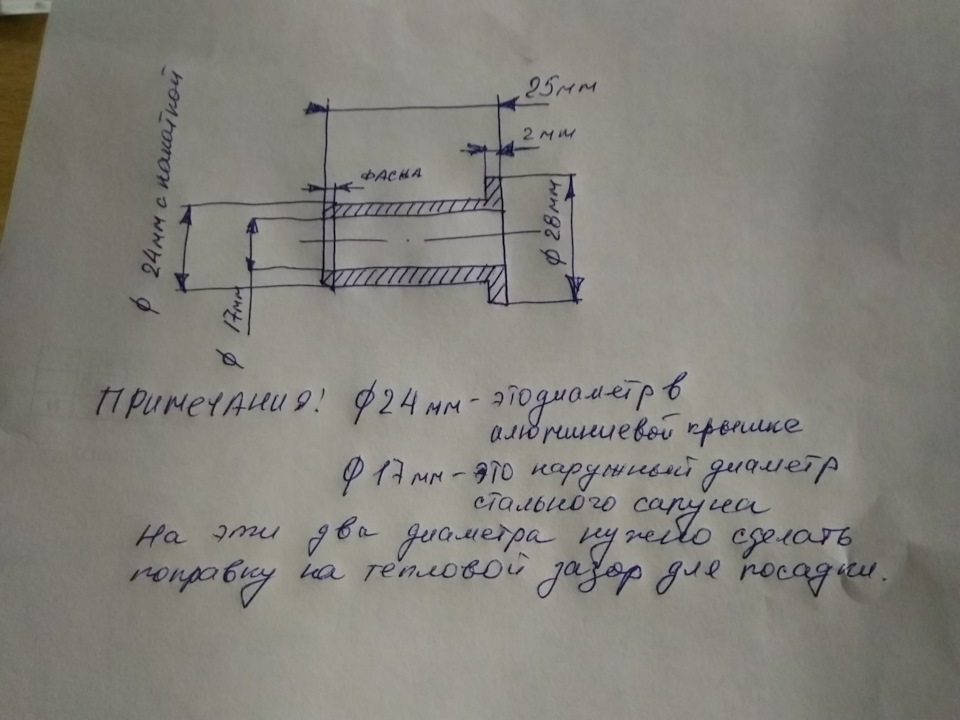 25мм
2 мм
ФАСКА
ф 24мм с накаткой
ф 17мм
ф 28мм
ПРИМЕЧАНИЯ! ф 24 мм - это диаметр в
алюминиевой крышке
ф 17 мм - это наружный диаметр
стального сапуна
На эти два диаметра нужно сделать
поправку на тепловой зазор для посадки.